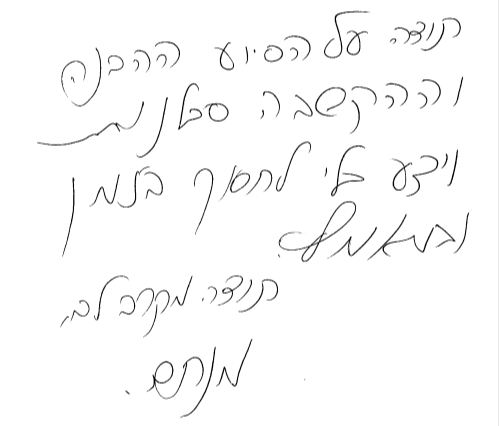 תודה על הסיוע ההבנה
וההקשבה סבלנות
וידע בלי לחסוך בזמן
ובמאמץ.
תודה מקרב לב,
מנחם.